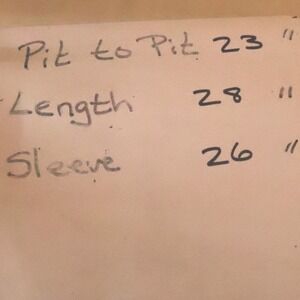 Pit to Pit 23 "
Length 28 "
Sleeve 26 "